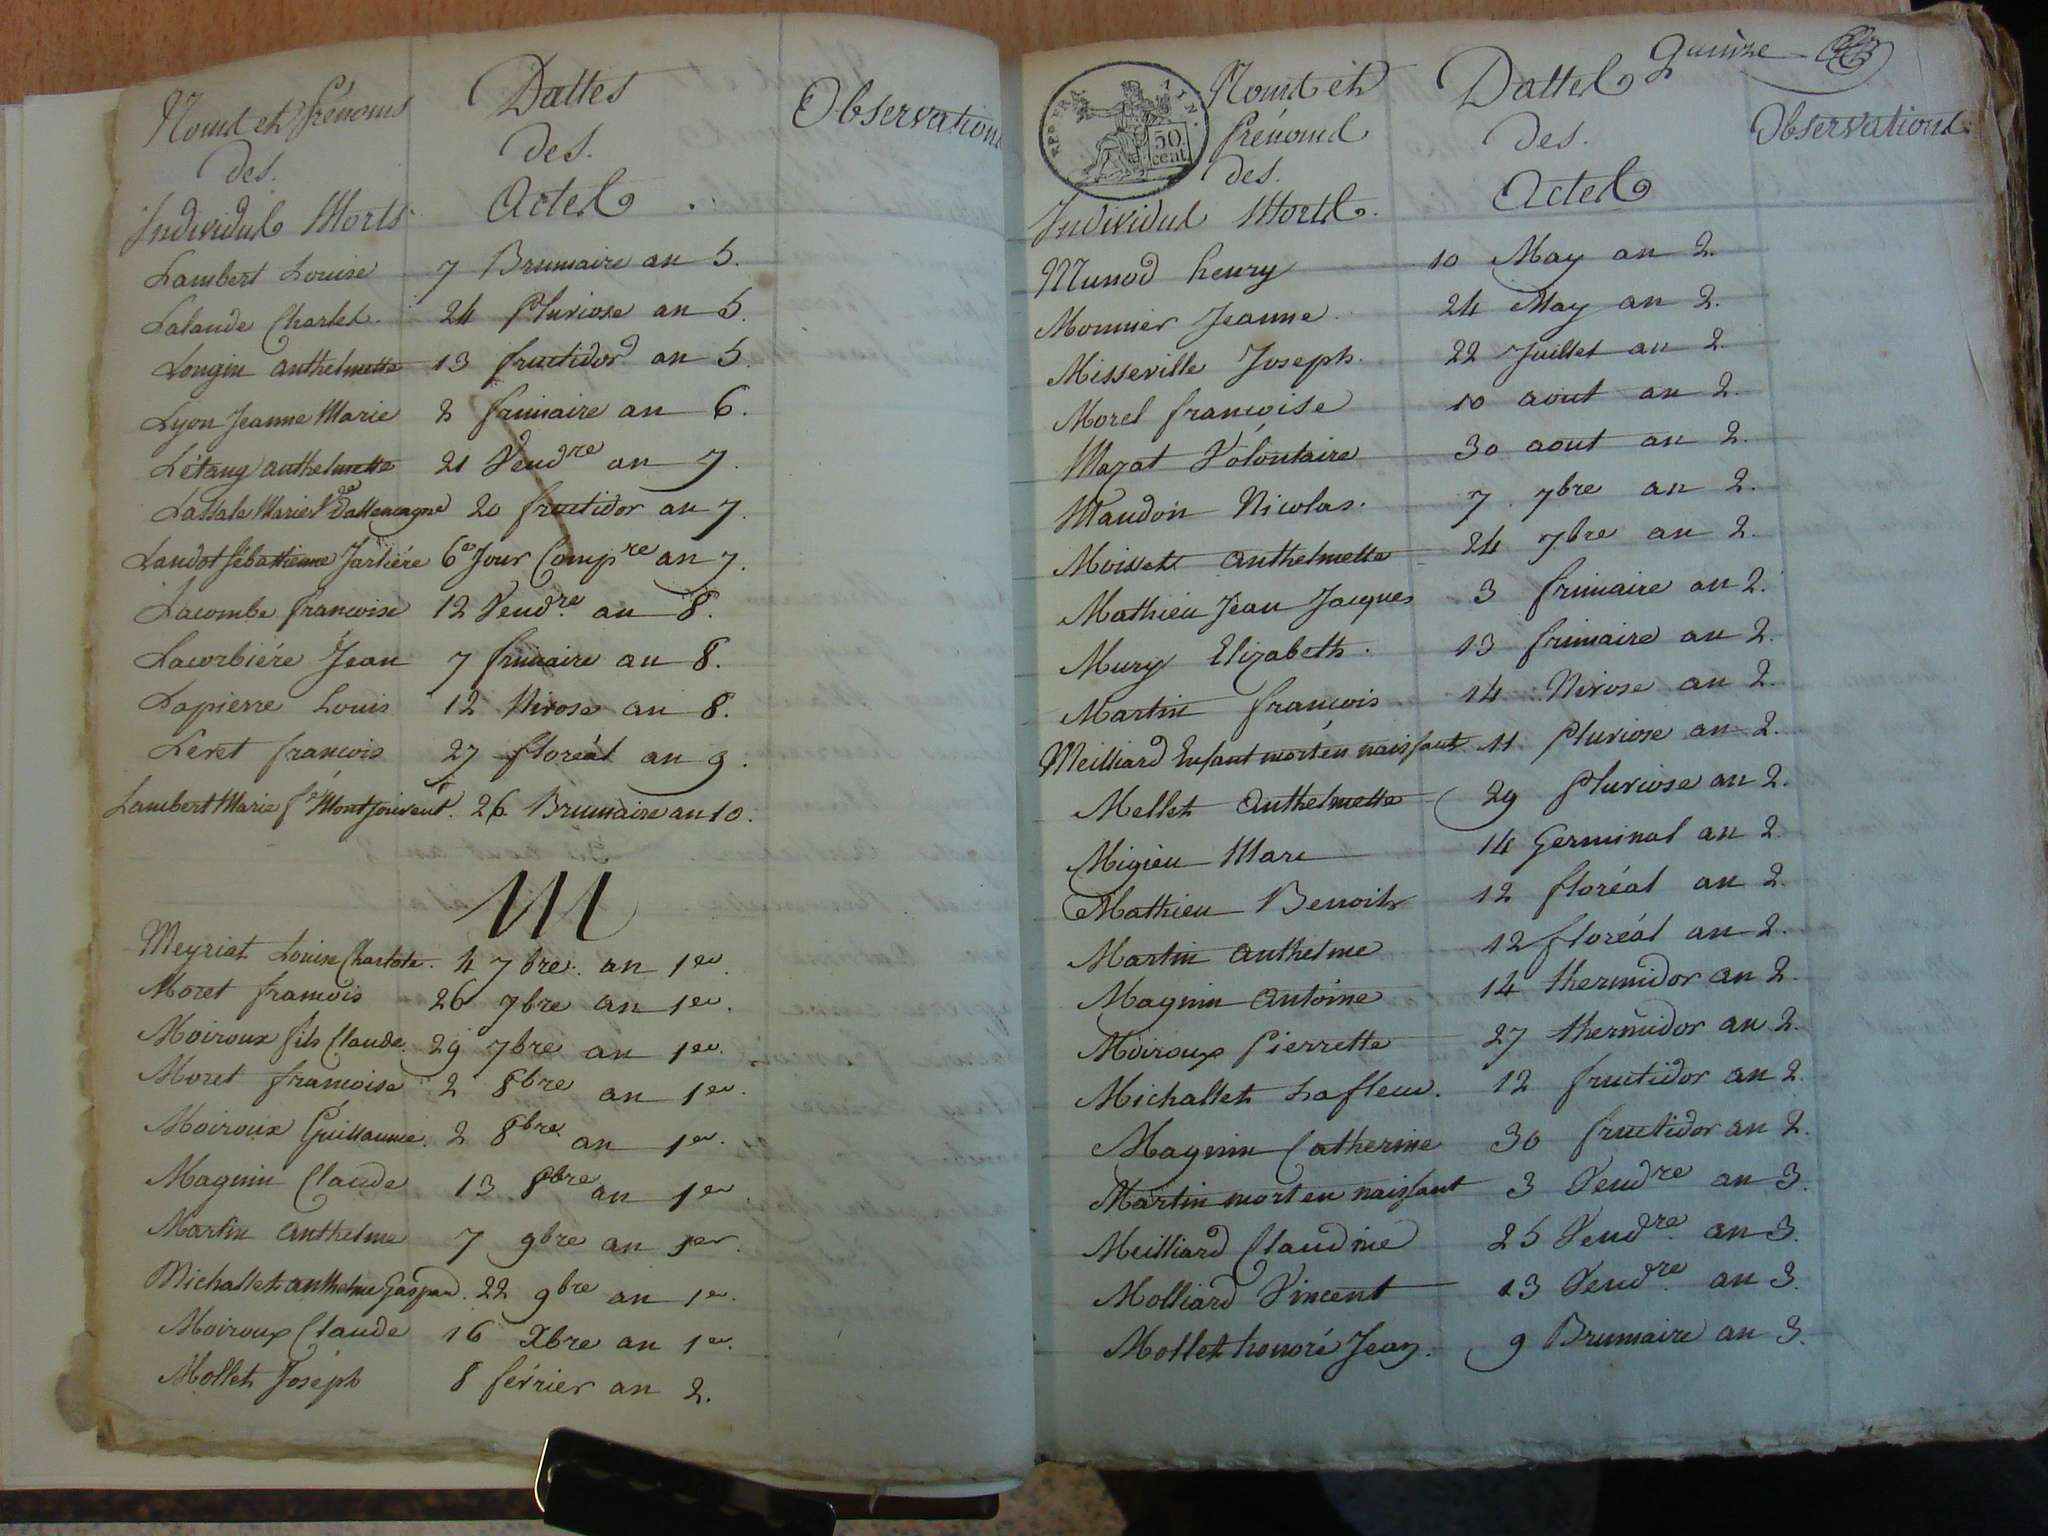 Noms et Prénoms
des
Individus Morts
Dattes
des
Actes
Observations
Lambert Louise 7 Brumaire an 5.
Lalande Charles 24 Pluviose an 5.
Longin anthelmette 13 fructidor an 5.
Lyon Jeanne Marie 2 frimaire an 6.
Létang anthelmette 21 Vendre an 7.
Lassale Marie Dallemagne 20 fructidor an 7.
Landot Sébastienne Jarliére 6e Jour Compre an 7.
Lacombe francoise 12 Vendre an 8.
Lacorbiére Jean 7 frimaire an 8.
Lapierre Louis 12 Nivose an 8.
Leret francois 27 floréal an 9.
Lambert Marie fe Montjouvent. 26 Brumaire an 10.
M
Meyriat Louise Charlote. 4 7bre. an 1er.
Moret francois 26 7bre an 1er.
Moiroux fils Claude. 29 7bre an 1er.
Moret francoise 2 8bre an 1er.
Moiroux Guillaume. 2 8bre an 1er.
Magnin Claude 13 8bre an 1er.
Martin anthelme 7 9bre an 1er.
Michallet anthelme Gaspard. 22 9bre an 1er.
Moiroux Claude 16 Xbre an 1er.
Mollet Joséph 8 février an 2.
quinze
REP. FRA. AIN.
50 cent
Noms et
Prénoms
des
Individus Morts.
Dattes
des.
Actes
Observations
Munod henry 10 May an 2.
Monnier Jeanne 24 May an 2.
Misseville Joseph. 22 Juillet an 2.
Morel francoise 10 aout an 2.
Mazat Volontaire 30 aout an 2.
Maudon Nicolas. 7 7bre an 2.
Moisset anthelmette 24 7bre an 2.
Mathieu Jean Jacques 3 frimaire an 2.
Mury Elizabeth. 13 frimaire an 2.
Martin francois 14 Nivose an 2.
Meilliard Enfant mort en naissant 11 Pluviose an 2.
Mellet anthelmette 29 Pluviose an 2.
Migieu Marc 14 Germinal an 2.
Mathieu Benoit 12 floréal an 2.
Martin anthelme 12 floréal an 2.
Magnin antoine 14 thermidor an 2.
Moiroux Pierrette 27 thermidor an 2.
Michallet Lafleur. 12 fructidor an 2.
Magnin Catherine 30 fructidor an 2.
Martin mort en naissant 3 Vendre an 3.
Meilliard Claudine 25 Vendre. an 3.
Molliard Vincent 13 Vendre. an 3.
Mollet honoré Jean. 9 Brumaire an 3.